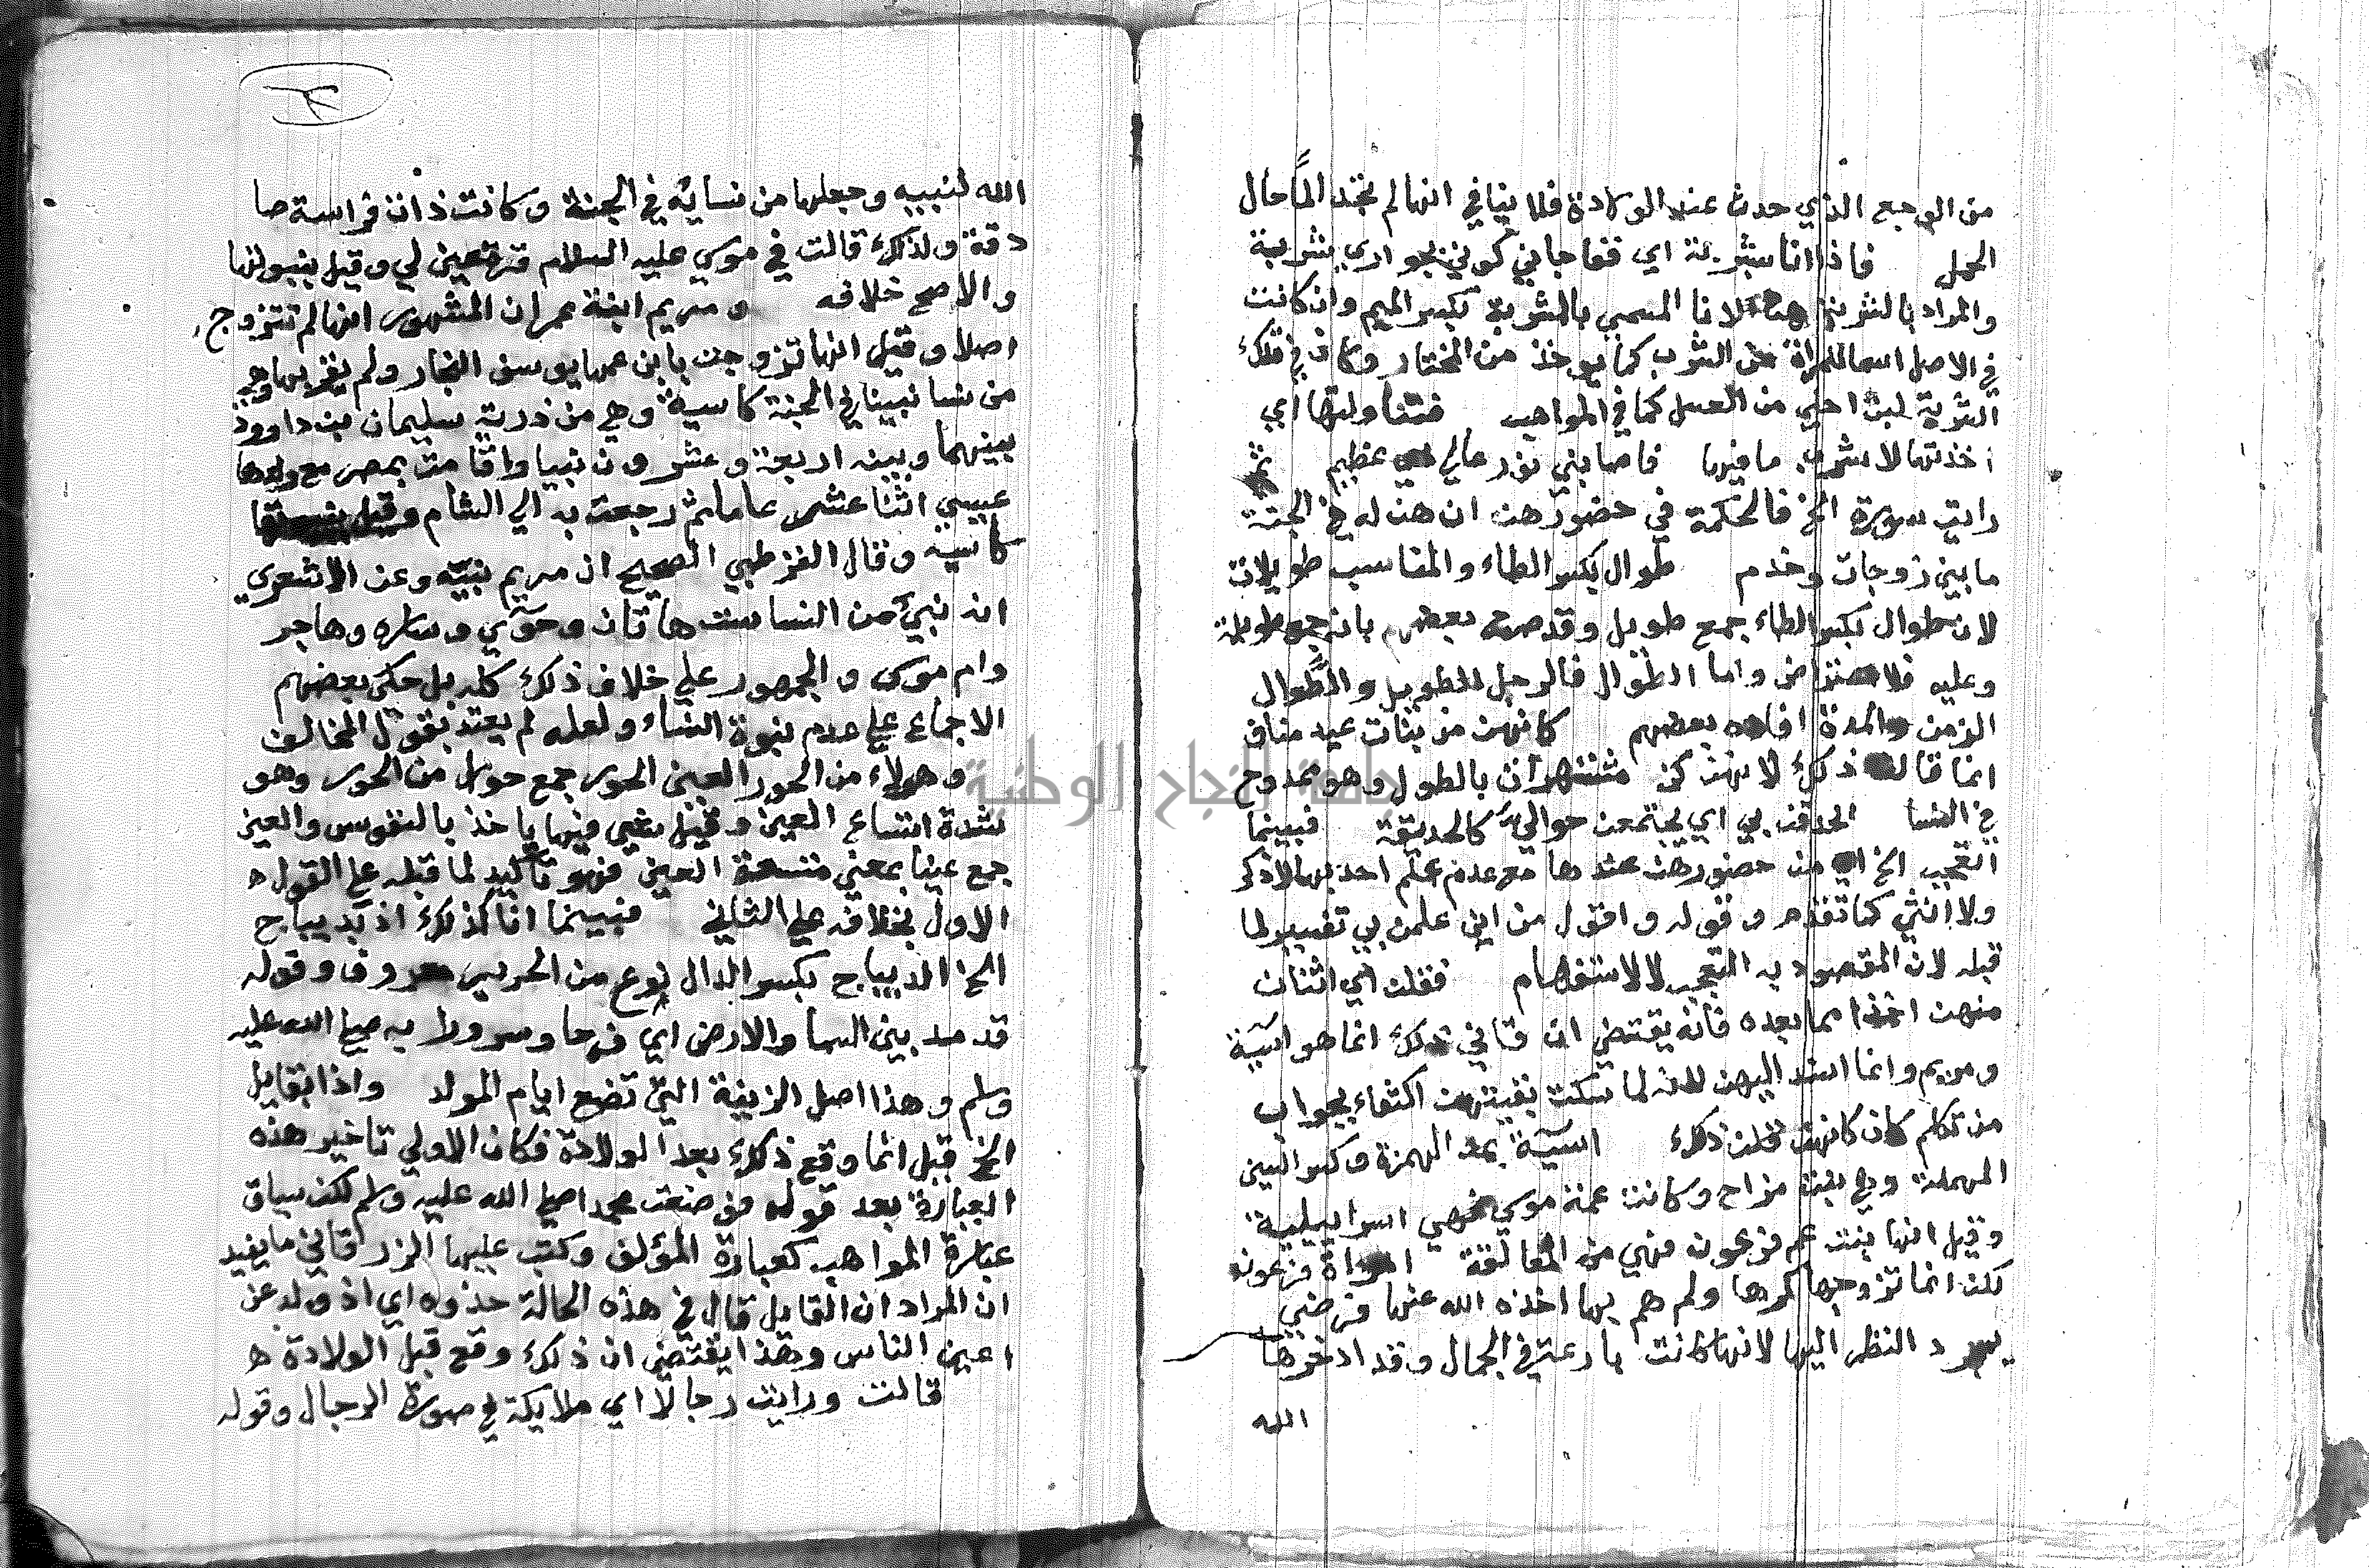 من الوجع الذي حدث عند الولادة فلا ينافي انها لم تجد الما حال
الحمل فاذا انا بشربة اي ففاجاني كوني بجواري بشربة
والمراد بالشربة هنا الانا المسمي بالمشربة بكسر الميم وان كانت
في الاصل اسما للمراة من الشرب كما يوخذ من المختار وكان في تلك
الشربة لبن احلي من العسل كما في المواهب فتناولتها اي
اخذتها لاشرب ما فيها فاصابني نور عالي اي عظيم ثم
رايت نسوة الخ فالحكمة في حضورهن ان هن له في الجنة
ما بين زوجات وخدم طوال بكسر الطاء والمناسب طويلات
لان طوال بكسر الطاء جمع طويل وقد صرح بعضهم بانه جمع طويلة
وعليه فلا اعتراض واما الطوال فالرجل الطويل والطوال
الزمن والمدة افاده بعضهم كانهن من بنات عبد مناف
انما قالت ذلك لانهن كن مشتهرات بالطول وهو ممدوح
في النسا احدقن بي اي يجتمعن حوالي كالحديقة فبينما
اتعجب الخ اي من حضورهن عندها مع عدم علم احد بها لا ذكر
ولا انثي كما تقدم وقوله واقول من اين علمن بي تفسير لما
قبله لان المقصود به التعجب لا الاستفهام فقلن اي اثنان
منهن اخذا مما بعده فانه يقتضي ان قائي ذلك انما هو اسية
ومريم وانما اسند اليهن لانه لما سكت بقيتهن اكتفاء بجواب
من تكلم كان كانهن قلن ذلك اسية بمد الهمزة وكسر السين
المهملة وهي بنت مزاح وكانت عمة موسي فهي اسراييلية
وقيل انها بنت عم فرعون فهي من العمالقة امراة فرعون
لكن انما تزوجها كرها ولم هم بها اخذه الله عنها فرضي
بمجرد النظر اليها لانها كانت بارعة في الجمال وقد ادخرها
الله
الله لنبيه وجعلها من نسايه في الجنة وكانت ذات فراسة صا
دقة ولذلك قالت في موسي عليه السلام قرة عين لي وقيل بنبوتها
والاصح خلافه ومريم ابنة عمران المشهور انها لم تتزوج
اصلا وقيل انها تزوجت بابن عمها يوسف النجار ولم يقربها وهي
من نسا نبينا في الجنة كاسية وهي من ذرية سليمان بن داوود
بينهما وبينه اربعة وعشرون نبيا واقامت بمصر مع ولدها
عيسي اثنا عشر عاما ثم رجعت به الي الشام وقيل بنبوتها
كاسية وقال القرطبي الصحيح ان مريم نبيه وعن الاشعري
انه نبئ من النسا ست هاتان وحوي وساره وهاجر
وام موسي والجمهور علي خلاف ذلك كله بل حكي بعضهم
الاجماع علي عدم نبوة النساء ولعله لم يعتد بقول المخالف
وهولاء من الحور العين الحور جمع حورا من الحور وهو
شدة اتساع العين وقيل شيي فيها ياخذ بالنفوس والعين
جمع عينا بمعني متسعة العين فهو تاكيد لما قبله علي القول
الاول بخلافه علي الثاني فبينما انا كذلك اذ بديباج
الخ الديباج بكسر الدال نوع من الحرير معروف وقوله
قد مد بين السما والارض اي فرحا وسرورا به صلي الله عليه
وسلم وهذا اصل الزينة التي تصنع ايام المولد واذا بقايل
الخ قيل انما وقع ذلك بعد الولادة فكان الاولي تاخير هذه
العبارة بعد قوله فوضعت محمدا صلي الله عليه وسلم لكن سياق
عبارة المواهب كعبارة المؤلف وكتب عليها الزرقاني ما يفيد
ان المراد ان القايل قال في هذه الحالة خذوه اي اذ ولد عن
اعين الناس وهذا يقتضي ان ذلك وقع قبل الولادة
قالت ورايت رجالا اي ملايكة في صورة الرجال وقوله
جامعة النجاح الوطنية